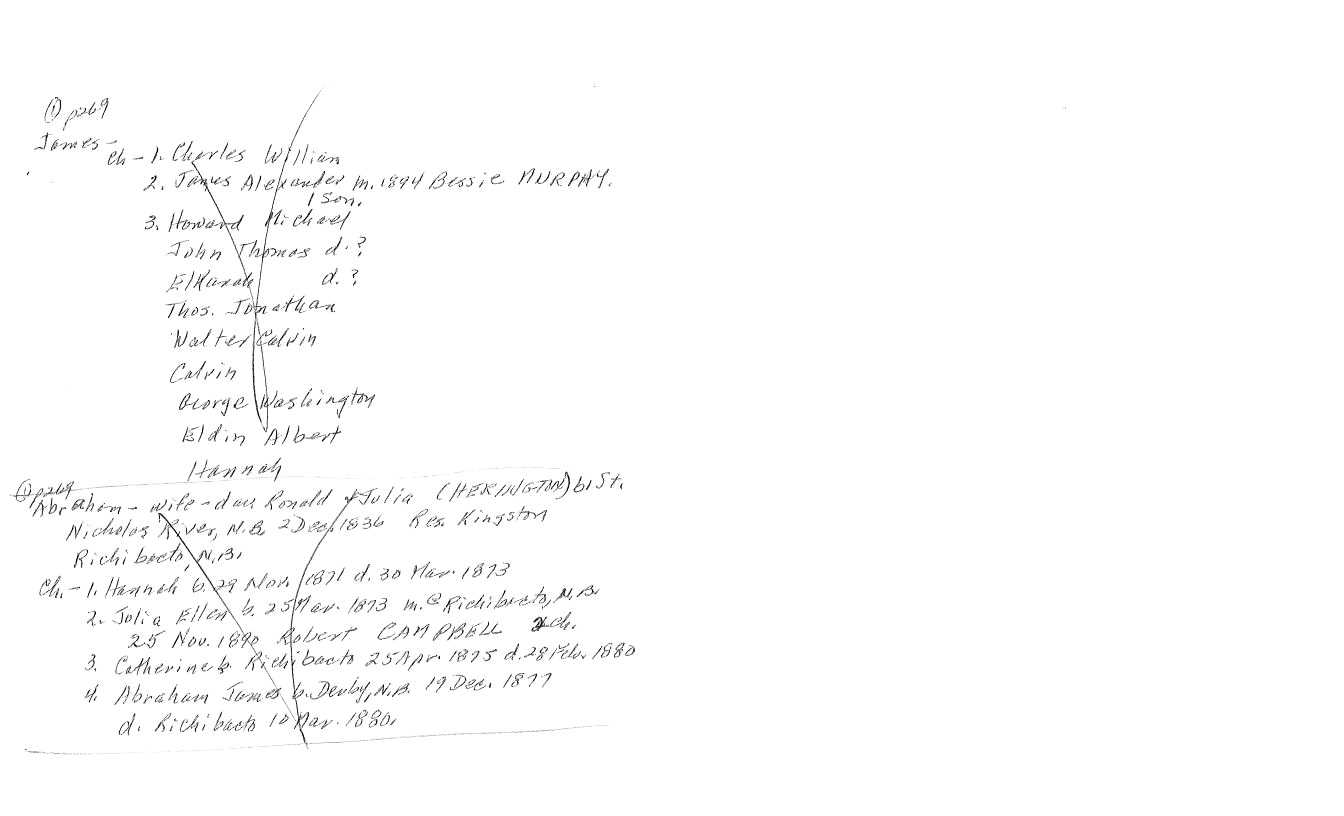 ① p269
James -
Ch - 1. Charles William
2. James Alexander m. 1894 Bessie MURPHY.
1 Son.
3. Howard Michael
John Thomas d. ?
Elkanah d. ?
Thos. Jonathan
Walter Calvin
Calvin
George Washington
Eldin Albert
Hannah
① p269
Abraham - wife - dau Ronald & Julia (HERINGTON) b. St.
Nicholas River, N.B. 2 Dec. 1836 Res. Kingston
Richibucto, N.B.
Ch. - 1. Hannah b. 29 Nov. 1871 d. 30 Mar. 1873
2. Julia Ellen b. 25 Mar. 1873 m. @ Richibucto, N.B.
25 Nov. 1890 Robert CAMPBELL 2 ch.
3. Catherine b. Richibucto 25 Apr. 1875 d. 28 Feb. 1880
4. Abraham James b. Derby, N.B. 19 Dec. 1877
d. Richibucto 10 Mar. 1880.